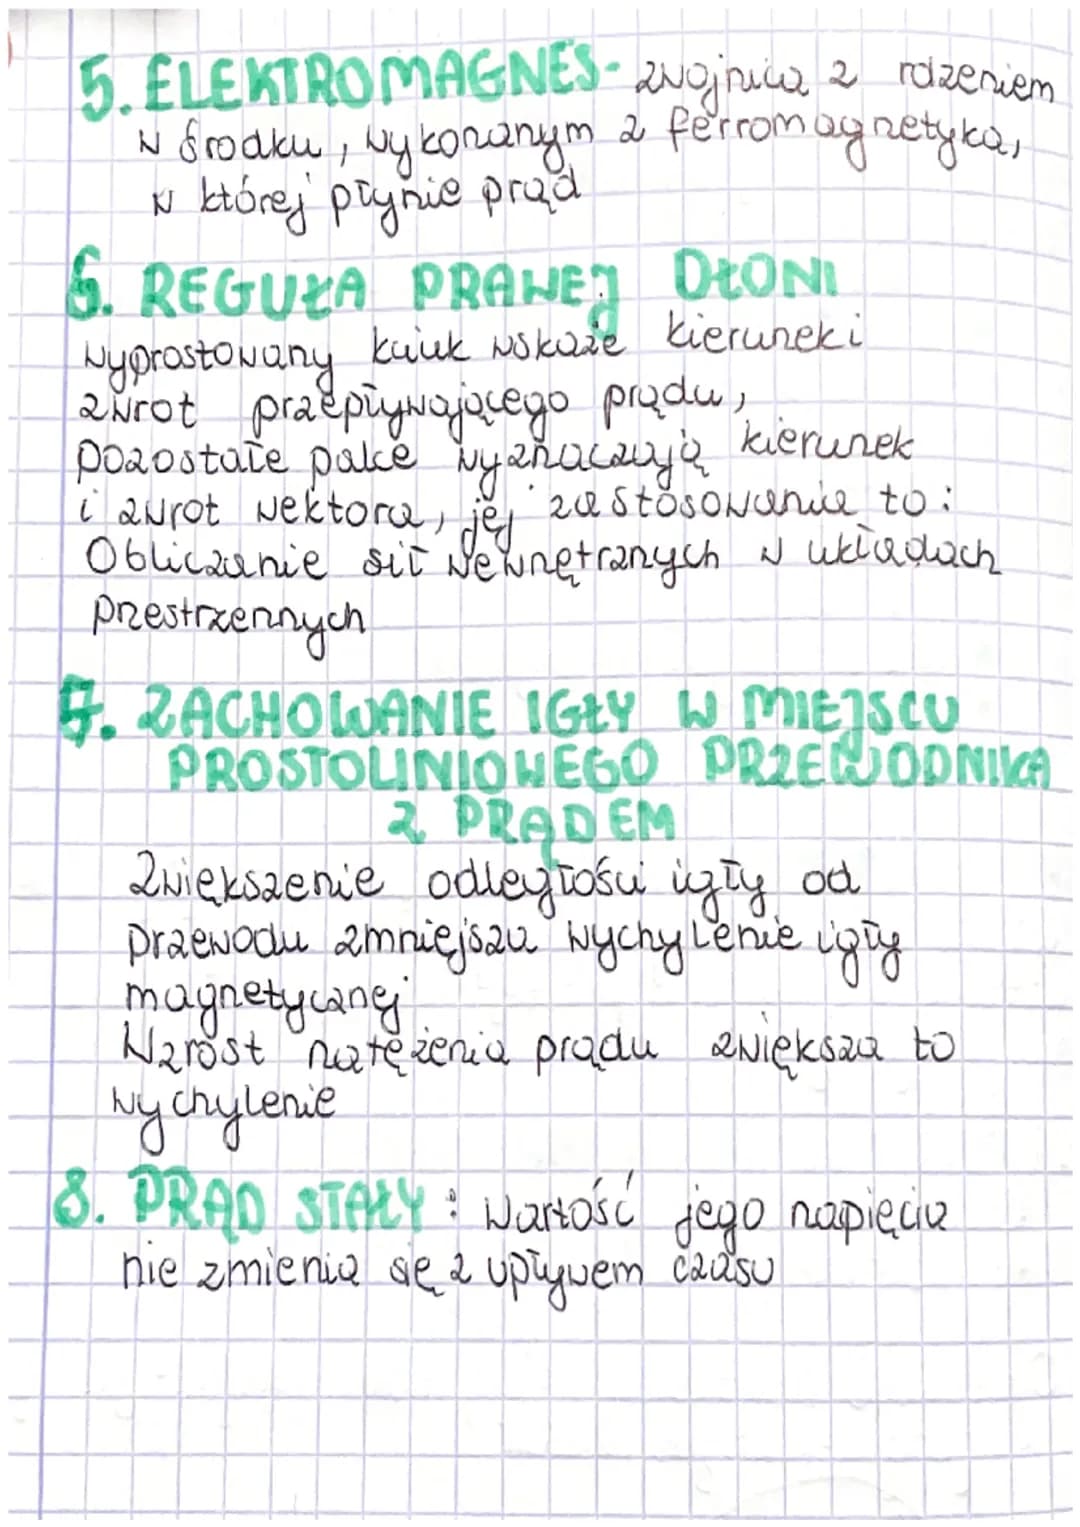 5. ELEKTROMAGNES- zwojnica z rdzeniem
w środku, wykonanym z ferromagnetyka,
w której płynie prąd
6. REGUŁA PRAWEJ DŁONI
wyprostowany kciuk wskaże kierunek i
zwrot przepływającego prądu,
pozostałe palce wyznaczają kierunek
i zwrot wektora, jej zastosowania to:
Obliczanie sił wewnętrznych w układach
przestrzennych
7. ZACHOWANIE IGŁY W MIEJSCU
PROSTOLINIOWEGO PRZEWODNIKA
Z PRĄDEM
Zwiększenie odległości igły od
przewodu zmniejsza wychylenie igły
magnetycznej
Wzrost natężenia prądu zwiększa to
wychylenie
8. PRĄD STAŁY: wartość jego napięcia
nie zmienia się z upływem czasu